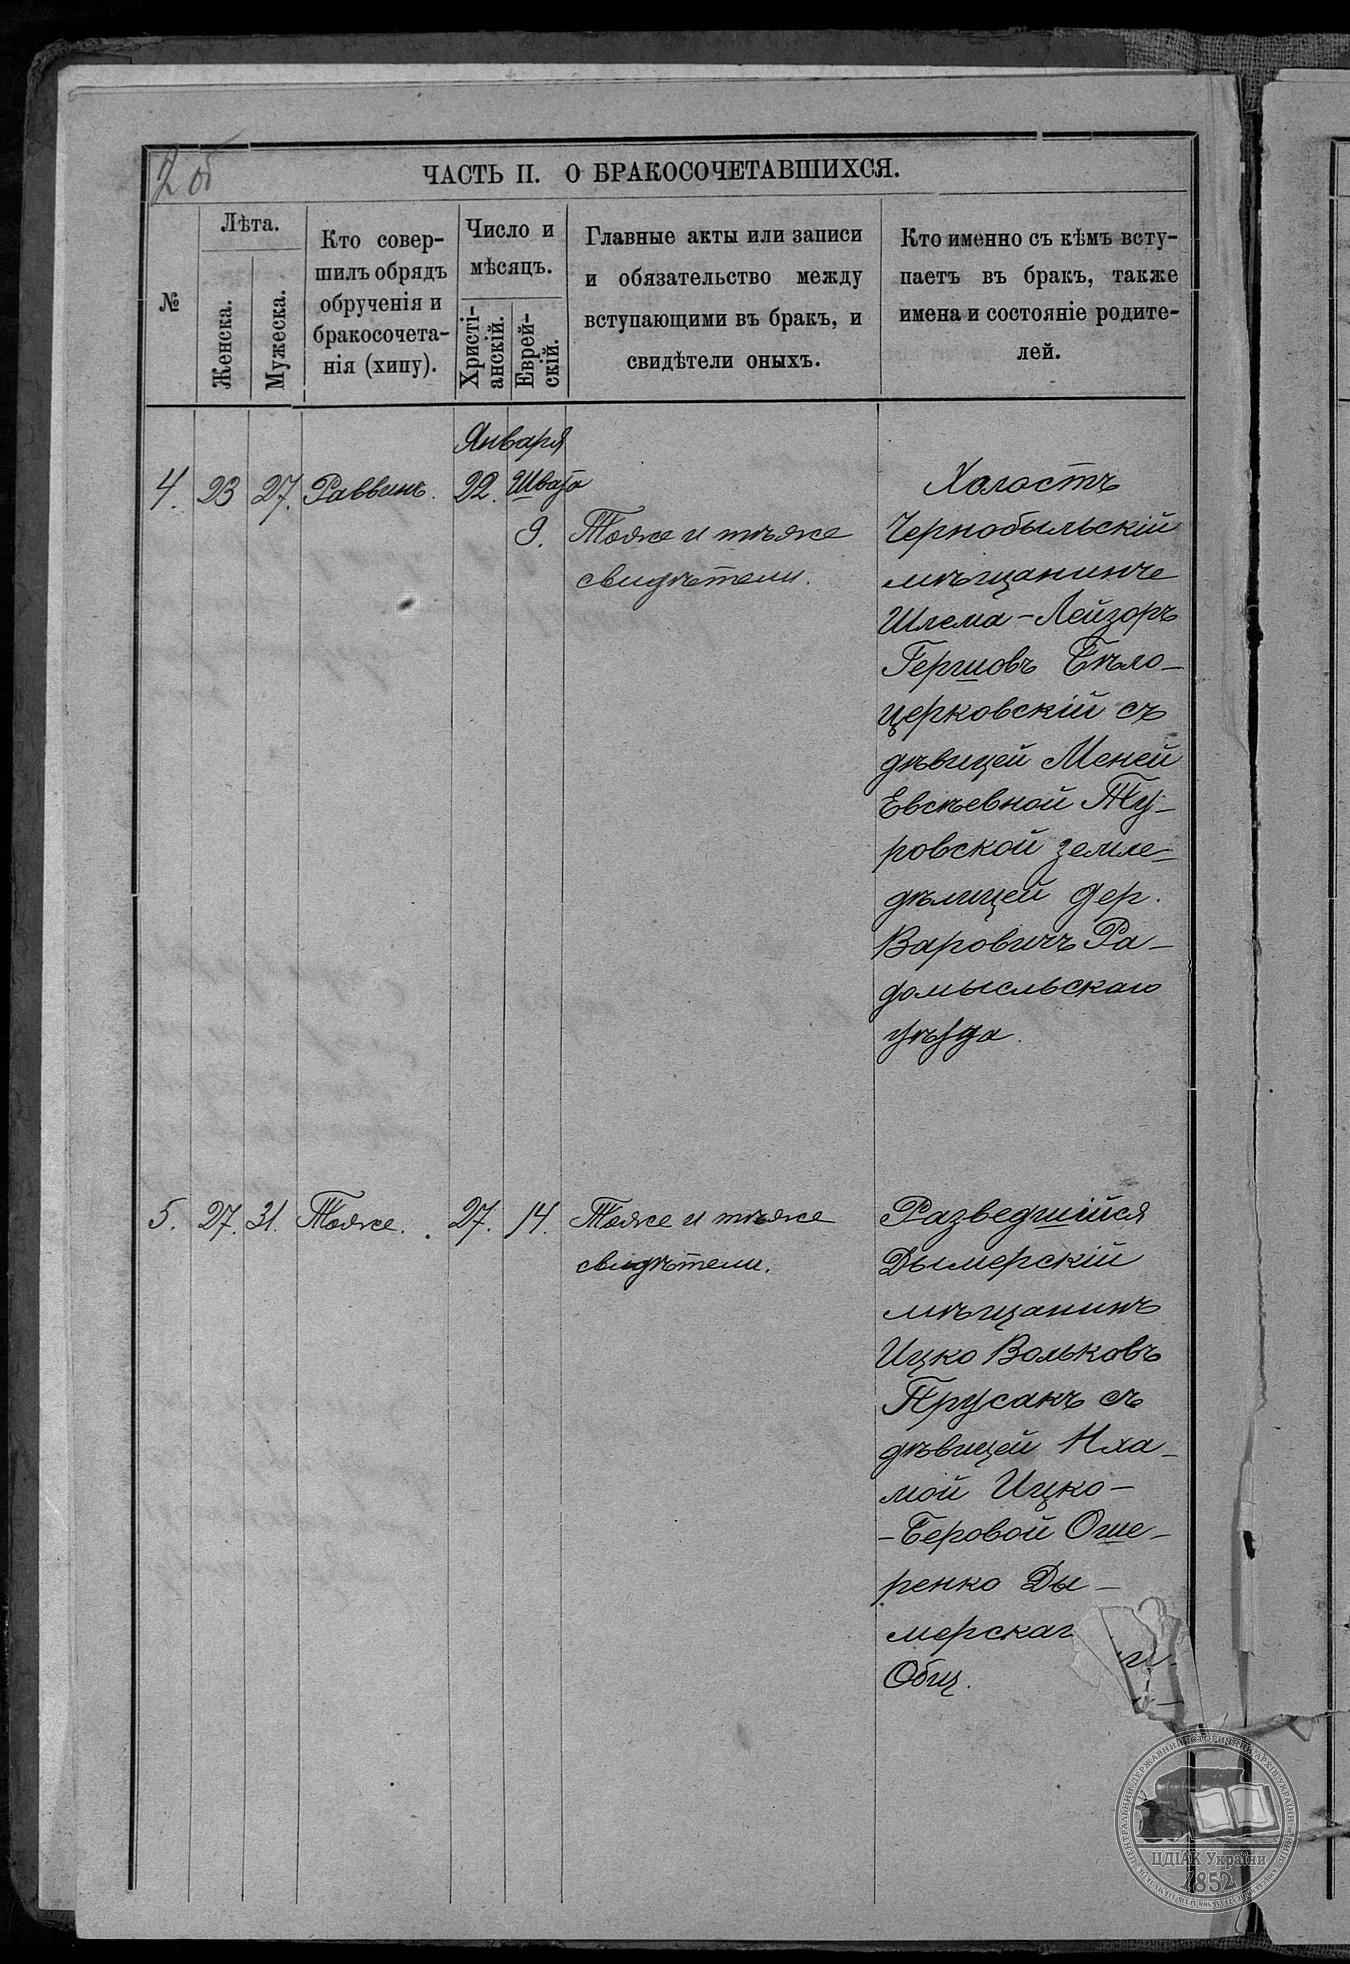 2 об
ЧАСТЬ II. О БРАКОСОЧЕТАВШИХСЯ.
№
Лѣта.
Женска.
Мужеска.
Кто совер-
шилъ обрядъ
обрученія и
бракосочета-
нія (хипу).
Число и
мѣсяцъ.
Христі-
анскій.
Еврей-
скій.
Главные акты или записи
и обязательство между
вступающими въ бракъ, и
свидѣтели оныхъ.
Кто именно съ кѣмъ всту-
паетъ въ бракъ, также
имена и состояніе родите-
лей.
Января
4. 23 27. Раввинъ. 22. Швата
9.
Тоже и тѣже
свидѣтели.
Холостъ
Чернобыльскій
мѣщанинъ
Шлема-Лейзоръ
Гершовъ Бѣло-
церковскій съ
дѣвицей Меней
Евсѣевной Ту-
ровской земле-
дѣлицей дер.
Варовичъ Ра-
домысльскаго
уѣзда.
5. 27. 31. Тоже. 27. 14.
Тоже и тѣже
свидѣтели.
Разведшійся
Дымерскій
мѣщанинъ
Ицко Вольковъ
Прусакъ съ
дѣвицей Нха-
мой Ицко-
-Беровой Оше-
ренко Ды-
мерскаг
Общ.
ЦЕНТРАЛЬНИЙ ДЕРЖАВНИЙ ІСТОРИЧНИЙ АРХІВ УКРАЇНИ
ЦДІАК України
1852